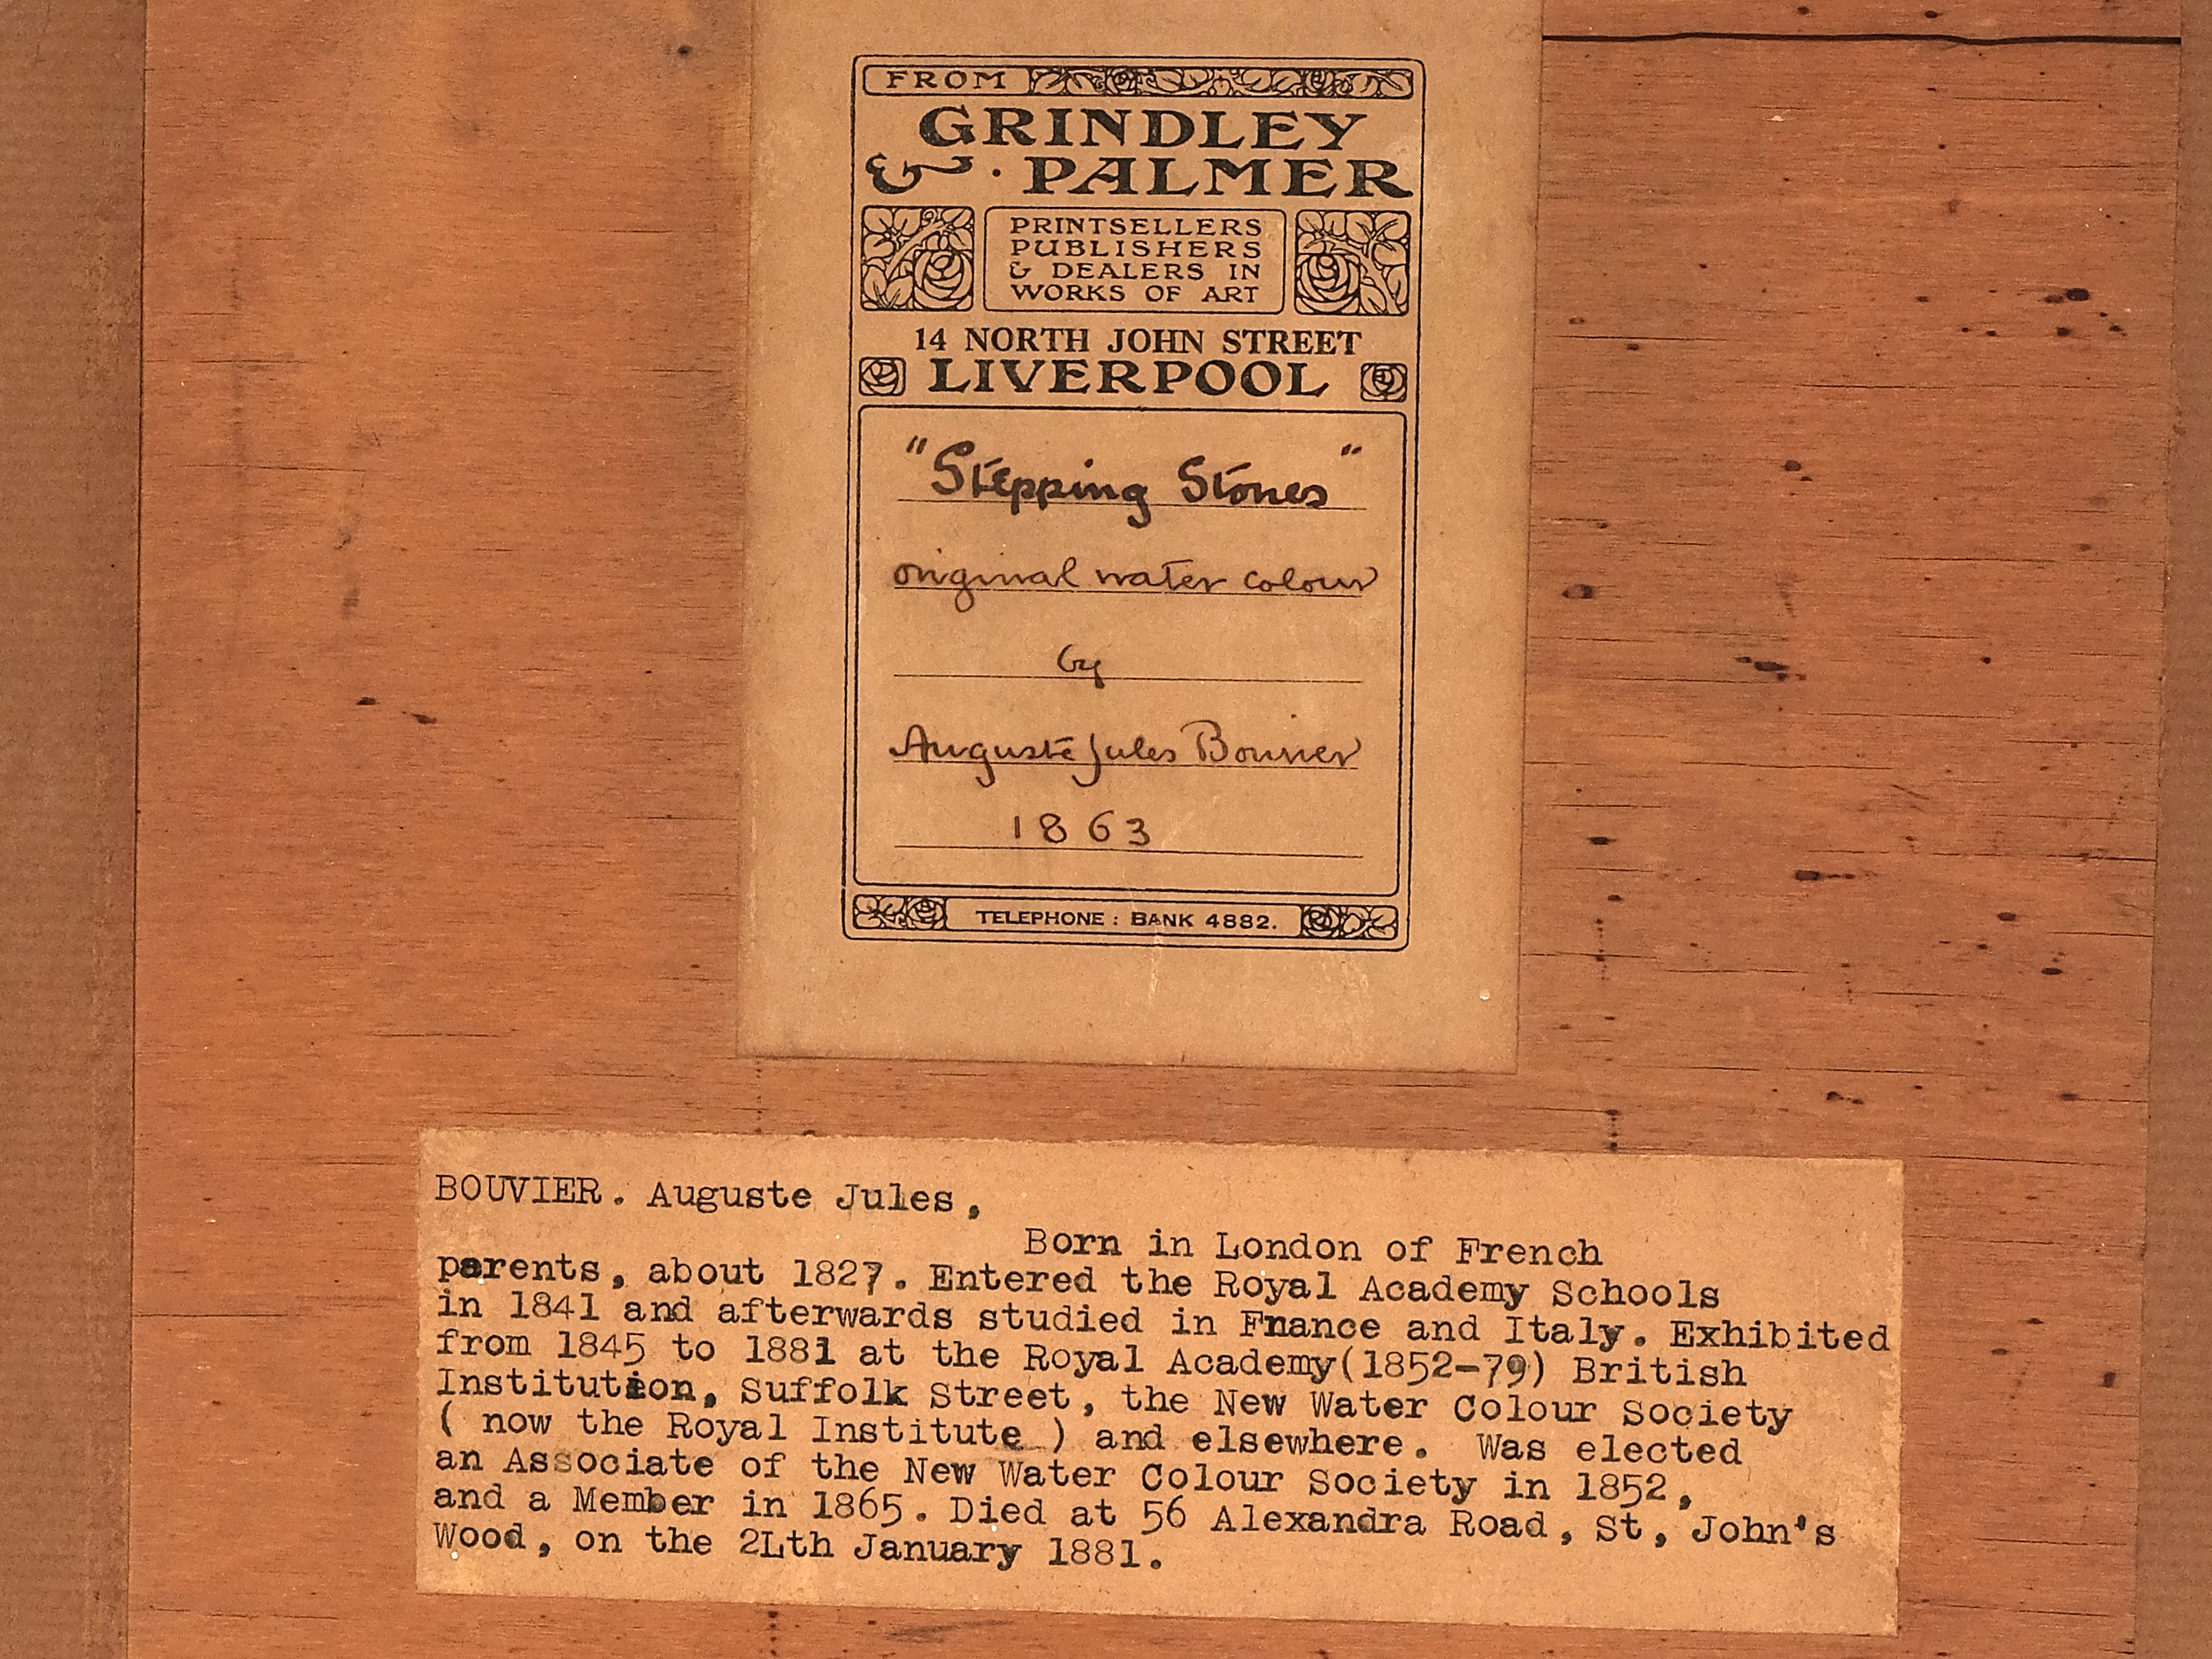 FROM
GRINDLEY
& · PALMER
PRINTSELLERS
PUBLISHERS
& DEALERS IN
WORKS OF ART
14 NORTH JOHN STREET
LIVERPOOL
"Stepping Stones"
original water colour
by
Auguste Jules Bouvier
1863
TELEPHONE : BANK 4882.
BOUVIER. Auguste Jules,
Born in London of French
parents, about 1827. Entered the Royal Academy Schools
in 1841 and afterwards studied in Fnance and Italy. Exhibited
from 1845 to 1881 at the Royal Academy(1852-79) British
Institution, Suffolk Street, the New Water Colour Society
( now the Royal Institute ) and elsewhere. Was elected
an Associate of the New Water Colour Society in 1852,
and a Member in 1865. Died at 56 Alexandra Road, St, John's
Wood, on the 2Lth January 1881.